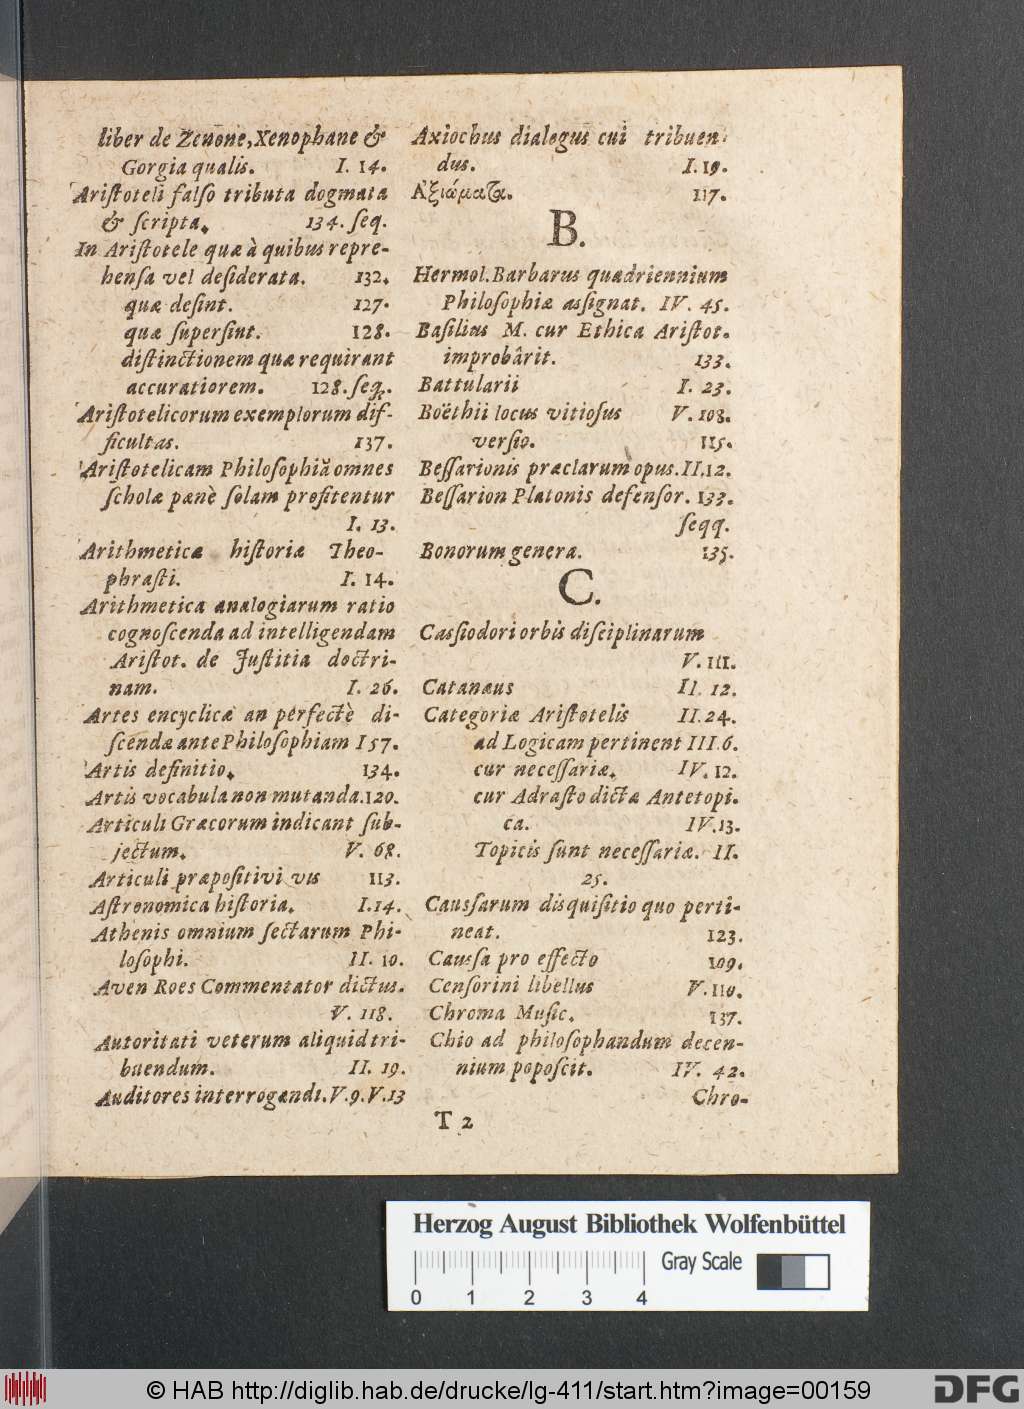 liber de Zenone, Xenophane &
Gorgia qualis. I. 14.
Aristoteli falso tributa dogmata
& scripta. 134. seq.
In Aristotele quæ à quibus repre-
hensa vel desiderata. 132.
quæ desint. 127.
quæ supersint. 128.
distinctionem quæ requirant
accuratiorem. 128. seq.
Aristotelicorum exemplorum dif-
ficultas. 137.
Aristotelicam Philosophiã omnes
scholæ pænè solam profitentur
I. 13.
Arithmeticæ historiæ Theo-
phrasti. I. 14.
Arithmetica analogiarum ratio
cognoscenda ad intelligendam
Aristot. de Justitia doctri-
nam. I. 26.
Artes encyclicæ an perfectè di-
scendæ ante Philosophiam I 57.
Artis definitio. 134.
Artis vocabula non mutanda. 120.
Articuli Græcorum indicant sub-
jectum. V. 68.
Articuli præpositivi vis 113.
Astronomica historia. I. 14.
Athenis omnium sectarum Phi-
losophi. II. 10.
Aven Roes Commentator dictus.
V. 118.
Autoritati veterum aliquid tri-
buendum. II. 19.
Auditores interrogandi. V. 9. V. 13
Axiochus dialogus cui tribuen-
dus. I. 19.
Ἀξιώματα. 117.
B.
Hermol. Barbarus quadriennium
Philosophiæ assignat. IV. 45.
Basilius M. cur Ethica Aristot.
improbârit. 133.
Battularii I. 23.
Boëthii locus vitiosus V. 108.
versio. 115.
Bessarionis præclarum opus. II. 12.
Bessarion Platonis defensor. 133.
seqq.
Bonorum genera. 135.
C.
Cassiodori orbis disciplinarum
V. 111.
Catanæus II. 12.
Categoriæ Aristotelis II. 24.
ad Logicam pertinent III. 6.
cur necessariæ. IV. 12.
cur Adrasto dictæ Antetopi.
ca. IV. 13.
Topicis sunt necessariæ. II.
25.
Caussarum disquisitio quo perti-
neat. 123.
Caussa pro effecto 109.
Censorini libellus V. 110.
Chroma Music. 137.
Chio ad philosophandum decen-
nium poposcit. IV. 42.
Chro-
T 2
Herzog August Bibliothek Wolfenbüttel
Gray Scale
0 1 2 3 4
© HAB http://diglib.hab.de/drucke/lg-411/start.htm?image=00159
DFG